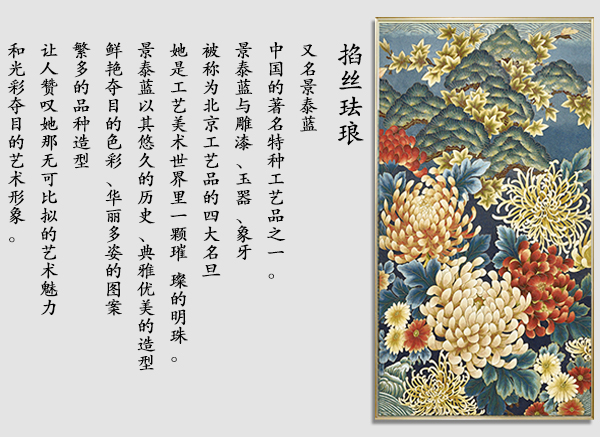 掐丝珐琅
又名景泰蓝
中国的著名特种工艺品之一。
景泰蓝与雕漆、玉器、象牙
被称为北京工艺品的四大名旦
她是工艺美术世界里一颗璀 璨的明珠。
景泰蓝以其悠久的历史、典雅优美的造型
鲜艳夺目的色彩、华丽多姿的图案
繁多的品种造型
让人赞叹她那无可比拟的艺术魅力
和光彩夺目的艺术形象。